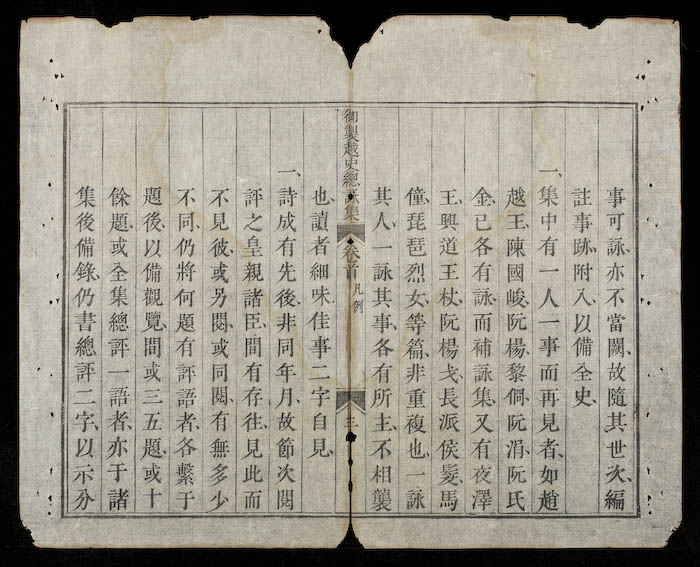 事可詠亦不當闕故隨其世次編
註事跡附入以備全史
一集中有一人一事而再見者如趙
越王陳國峻阮楊黎侗阮涓阮氏
金已各有詠而補詠集又有夜澤
王興道王杖阮楊戈長派侯髮馬
僮琵琶烈女等篇非重複也一詠
其人一詠其事各有所主不相襲
御製越史總詠集 卷首 凡例 三
也讀者細味佳事二字自見
一詩成有先後非同年月故節次閱
評之皇親諸臣間有存往見此而
不見彼或另閱或同閱有無多少
不同仍將何題有評語者各繫于
題後以備觀覽間或三五題或十
餘題或全集總評一語者亦于諸
集後備錄仍書總評二字以示分